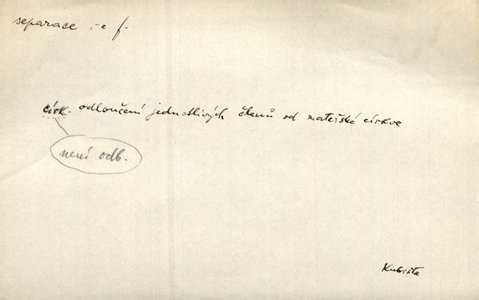 separace, -e f.
círk. odloučení jednotlivých členů od mateřské církve
není odb.
Kubišta